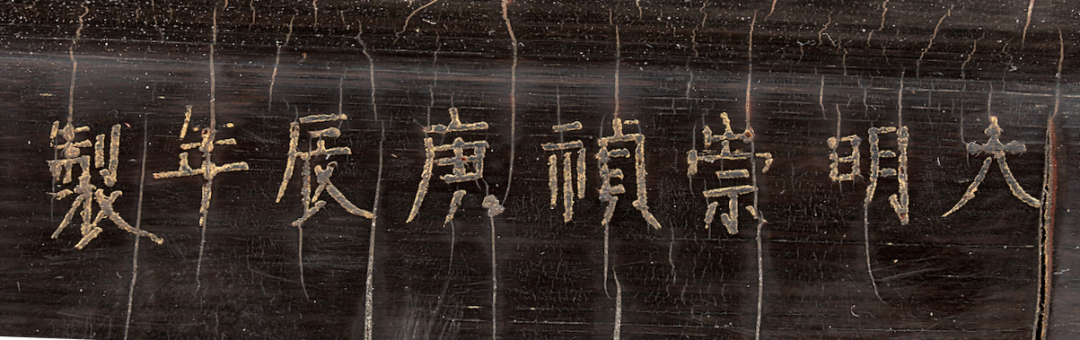 大明崇禎庚辰年製